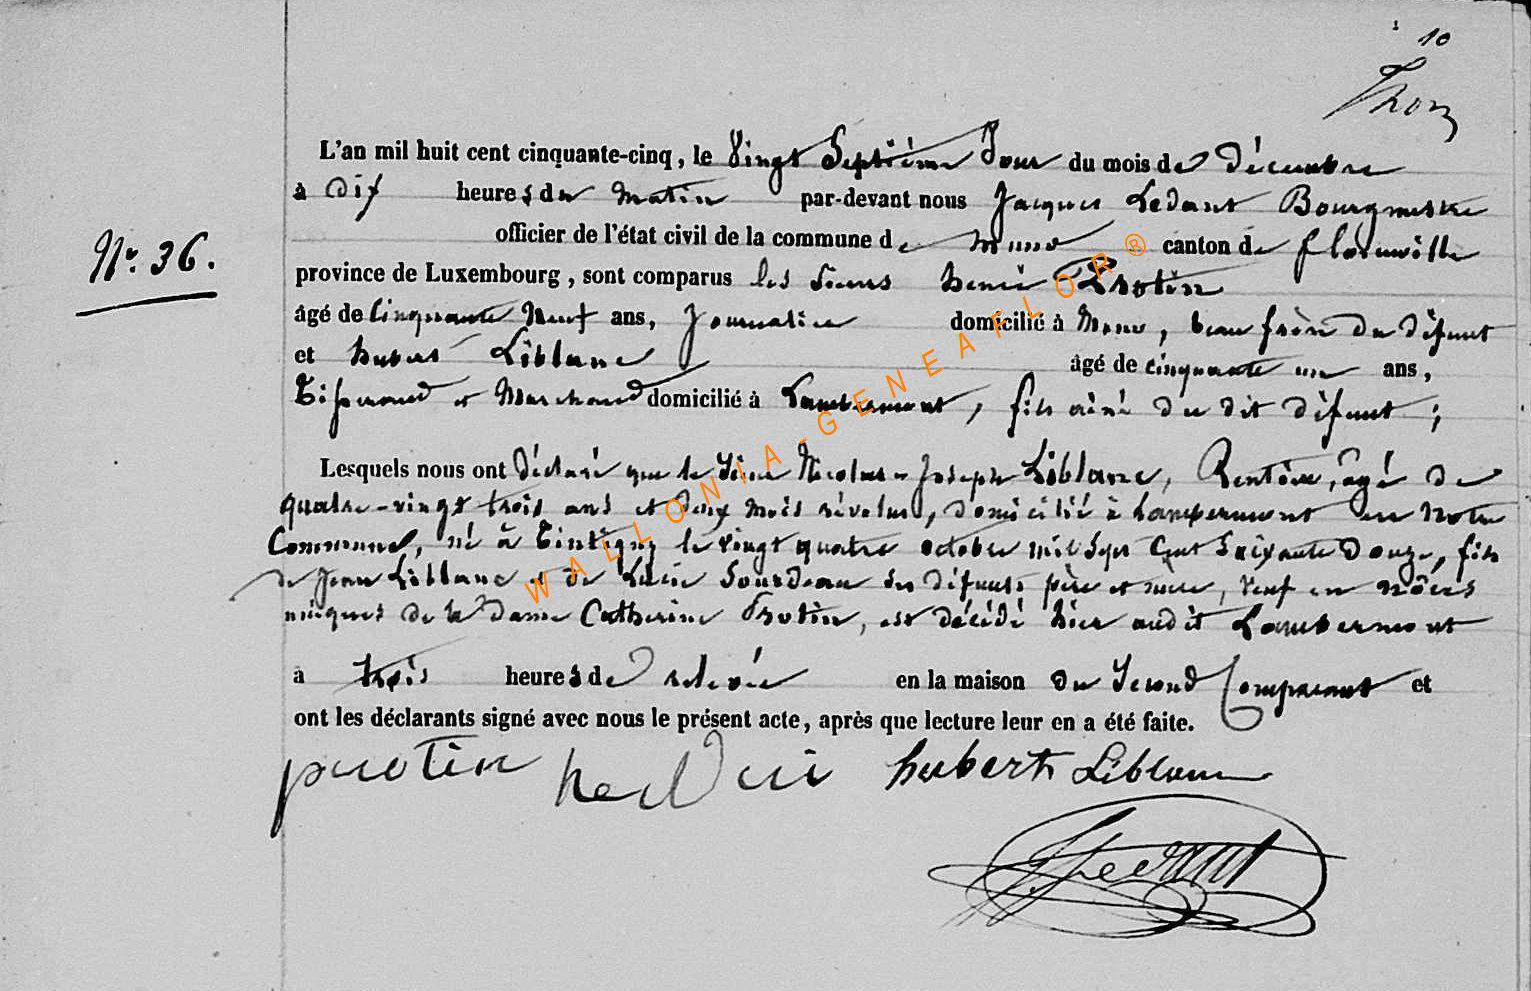 10
Thon
L'an mil huit cent cinquante-cinq, le Vingt Septième Jour du mois de décembre
à dix heures du Matin par-devant nous Jacques Ledant Bourgmestre
N°. 36.
officier de l'état civil de la commune de Muno canton de florenville
province de Luxembourg, sont comparus les sieurs henri Protin
âgé de Cinquante Neuf ans, Journalier domicilié à Muno, beau frère du défunt
et hubert Liblanc âgé de cinquante un ans,
Tisserand et Marchand domicilié à Lambermont, fils aîné du dit défunt;
Lesquels nous ont déclaré que le Sieur Nicolas-Joseph Liblanc, Rentier, âgé de
quatre-vingt trois ans et deux mois révolus, domicilié à Lambermont en Notre
Commune, né à Tintigny le vingt quatre octobre mil Sept Cent Soixante Douze, fils
de Jean Liblanc et de Lucie Sourdeau ses défunts père et mère, Veuf en nôces
uniques de la dame Catherine Protin, est décédé hier audit Lambermont
à trois heures de relevée en la maison du Second Comparant et
ont les déclarants signé avec nous le présent acte, après que lecture leur en a été faite.
protin henri hubert Liblanc
J Ledant
WALLONIA-GENEAFLOR®